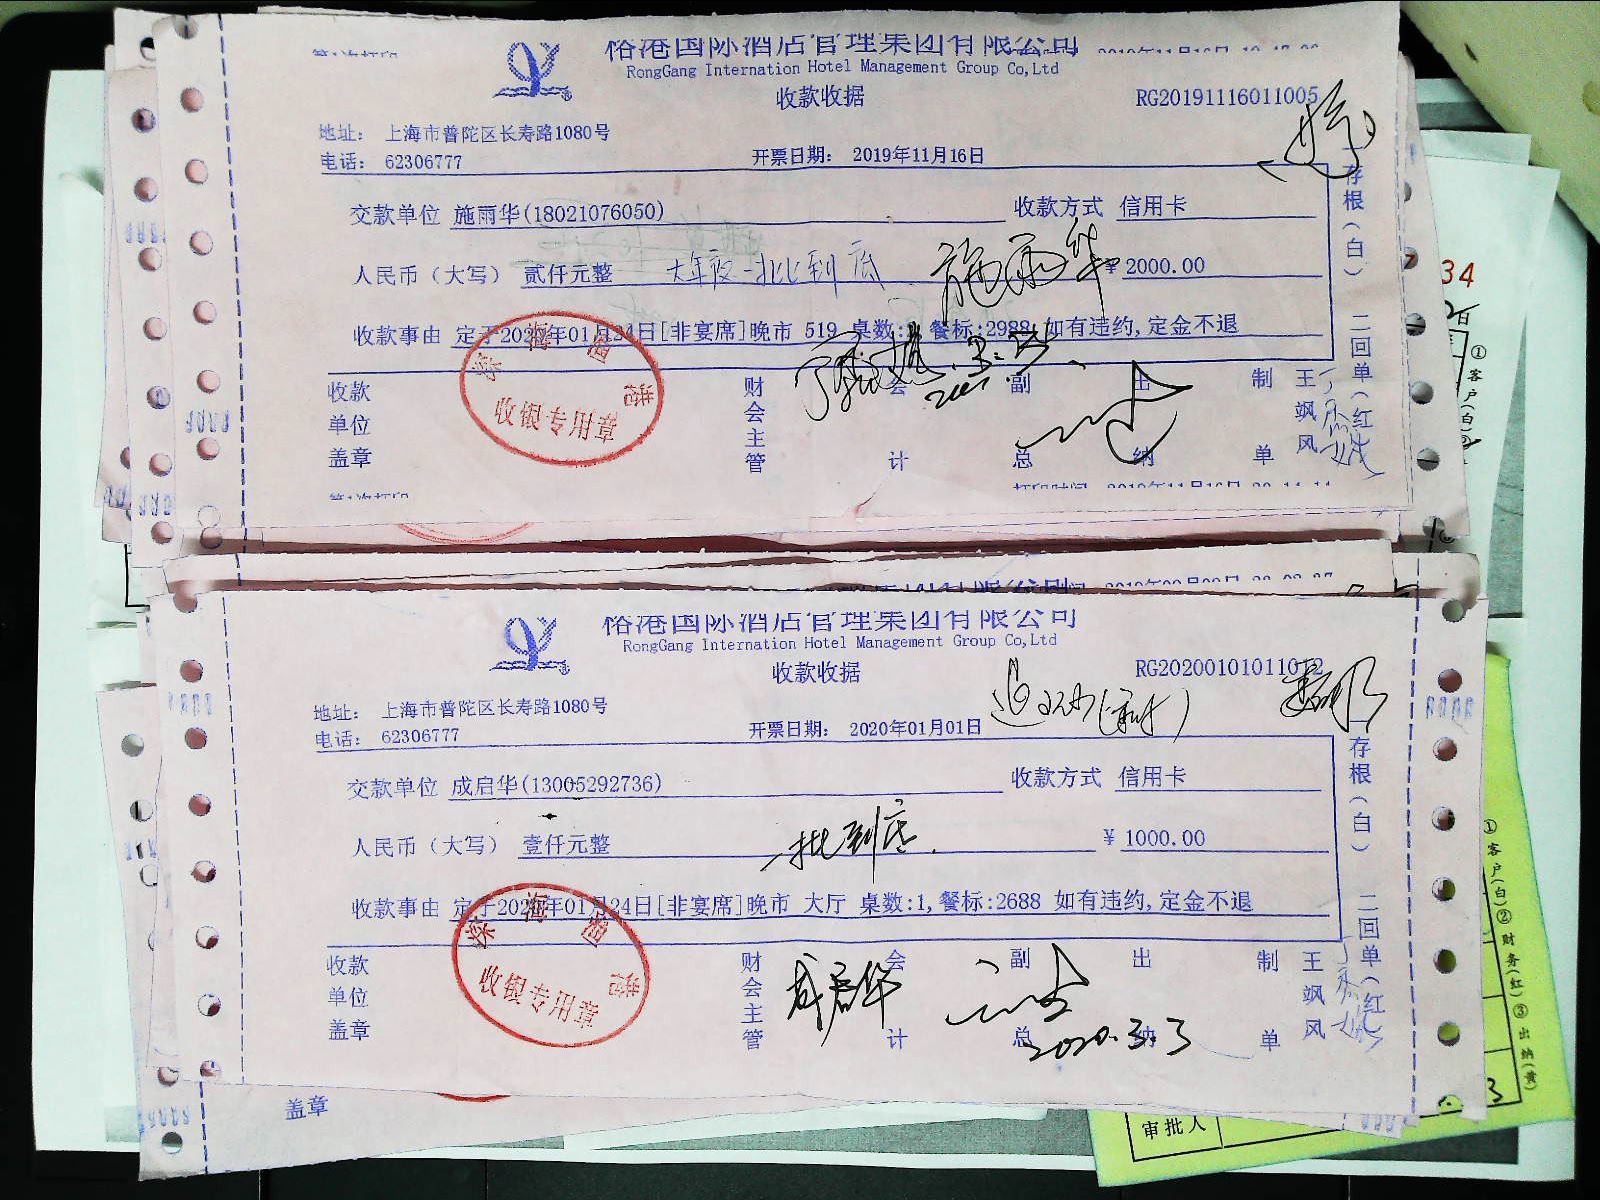 裕港国际酒店管理集团有限公司
RongGang Internation Hotel Management Group Co,Ltd
收款收据
RG20191116011005
地址： 上海市普陀区长寿路1080号
电话： 62306777
开票日期： 2019年11月16日
交款单位 施雨华(18021076050)
收款方式 信用卡
人民币（大写） 贰仟元整
大年夜一批到店
施雨华
￥2000.00
收款事由 定于2020年01月24日[非宴席]晚市 519 桌数:1 餐标:2988 如有违约,定金不退
存根（白） 二回单（红
深海国
收银专用章
收款单位盖章
财会主管
会计
副总
出纳
制单
王飒风
34
日
①客户(白)②
裕港国际酒店管理集团有限公司
RongGang Internation Hotel Management Group Co,Ltd
收款收据
RG20200101011012
地址： 上海市普陀区长寿路1080号
电话： 62306777
开票日期： 2020年01月01日
交款单位 成启华(13005292736)
收款方式 信用卡
人民币（大写） 壹仟元整
一批到店.
￥ 1000.00
收款事由 定于2020年01月24日[非宴席]晚市 大厅 桌数:1,餐标:2688 如有违约,定金不退
存根（白） 二回单（红
深海国
收银专用章
收款单位盖章
财会主管
会计
副总
出纳
制单
王飒风
成启华
2020.3.3
①客户(白)②财务(红)③出纳(黄)
盖章
审批人
3